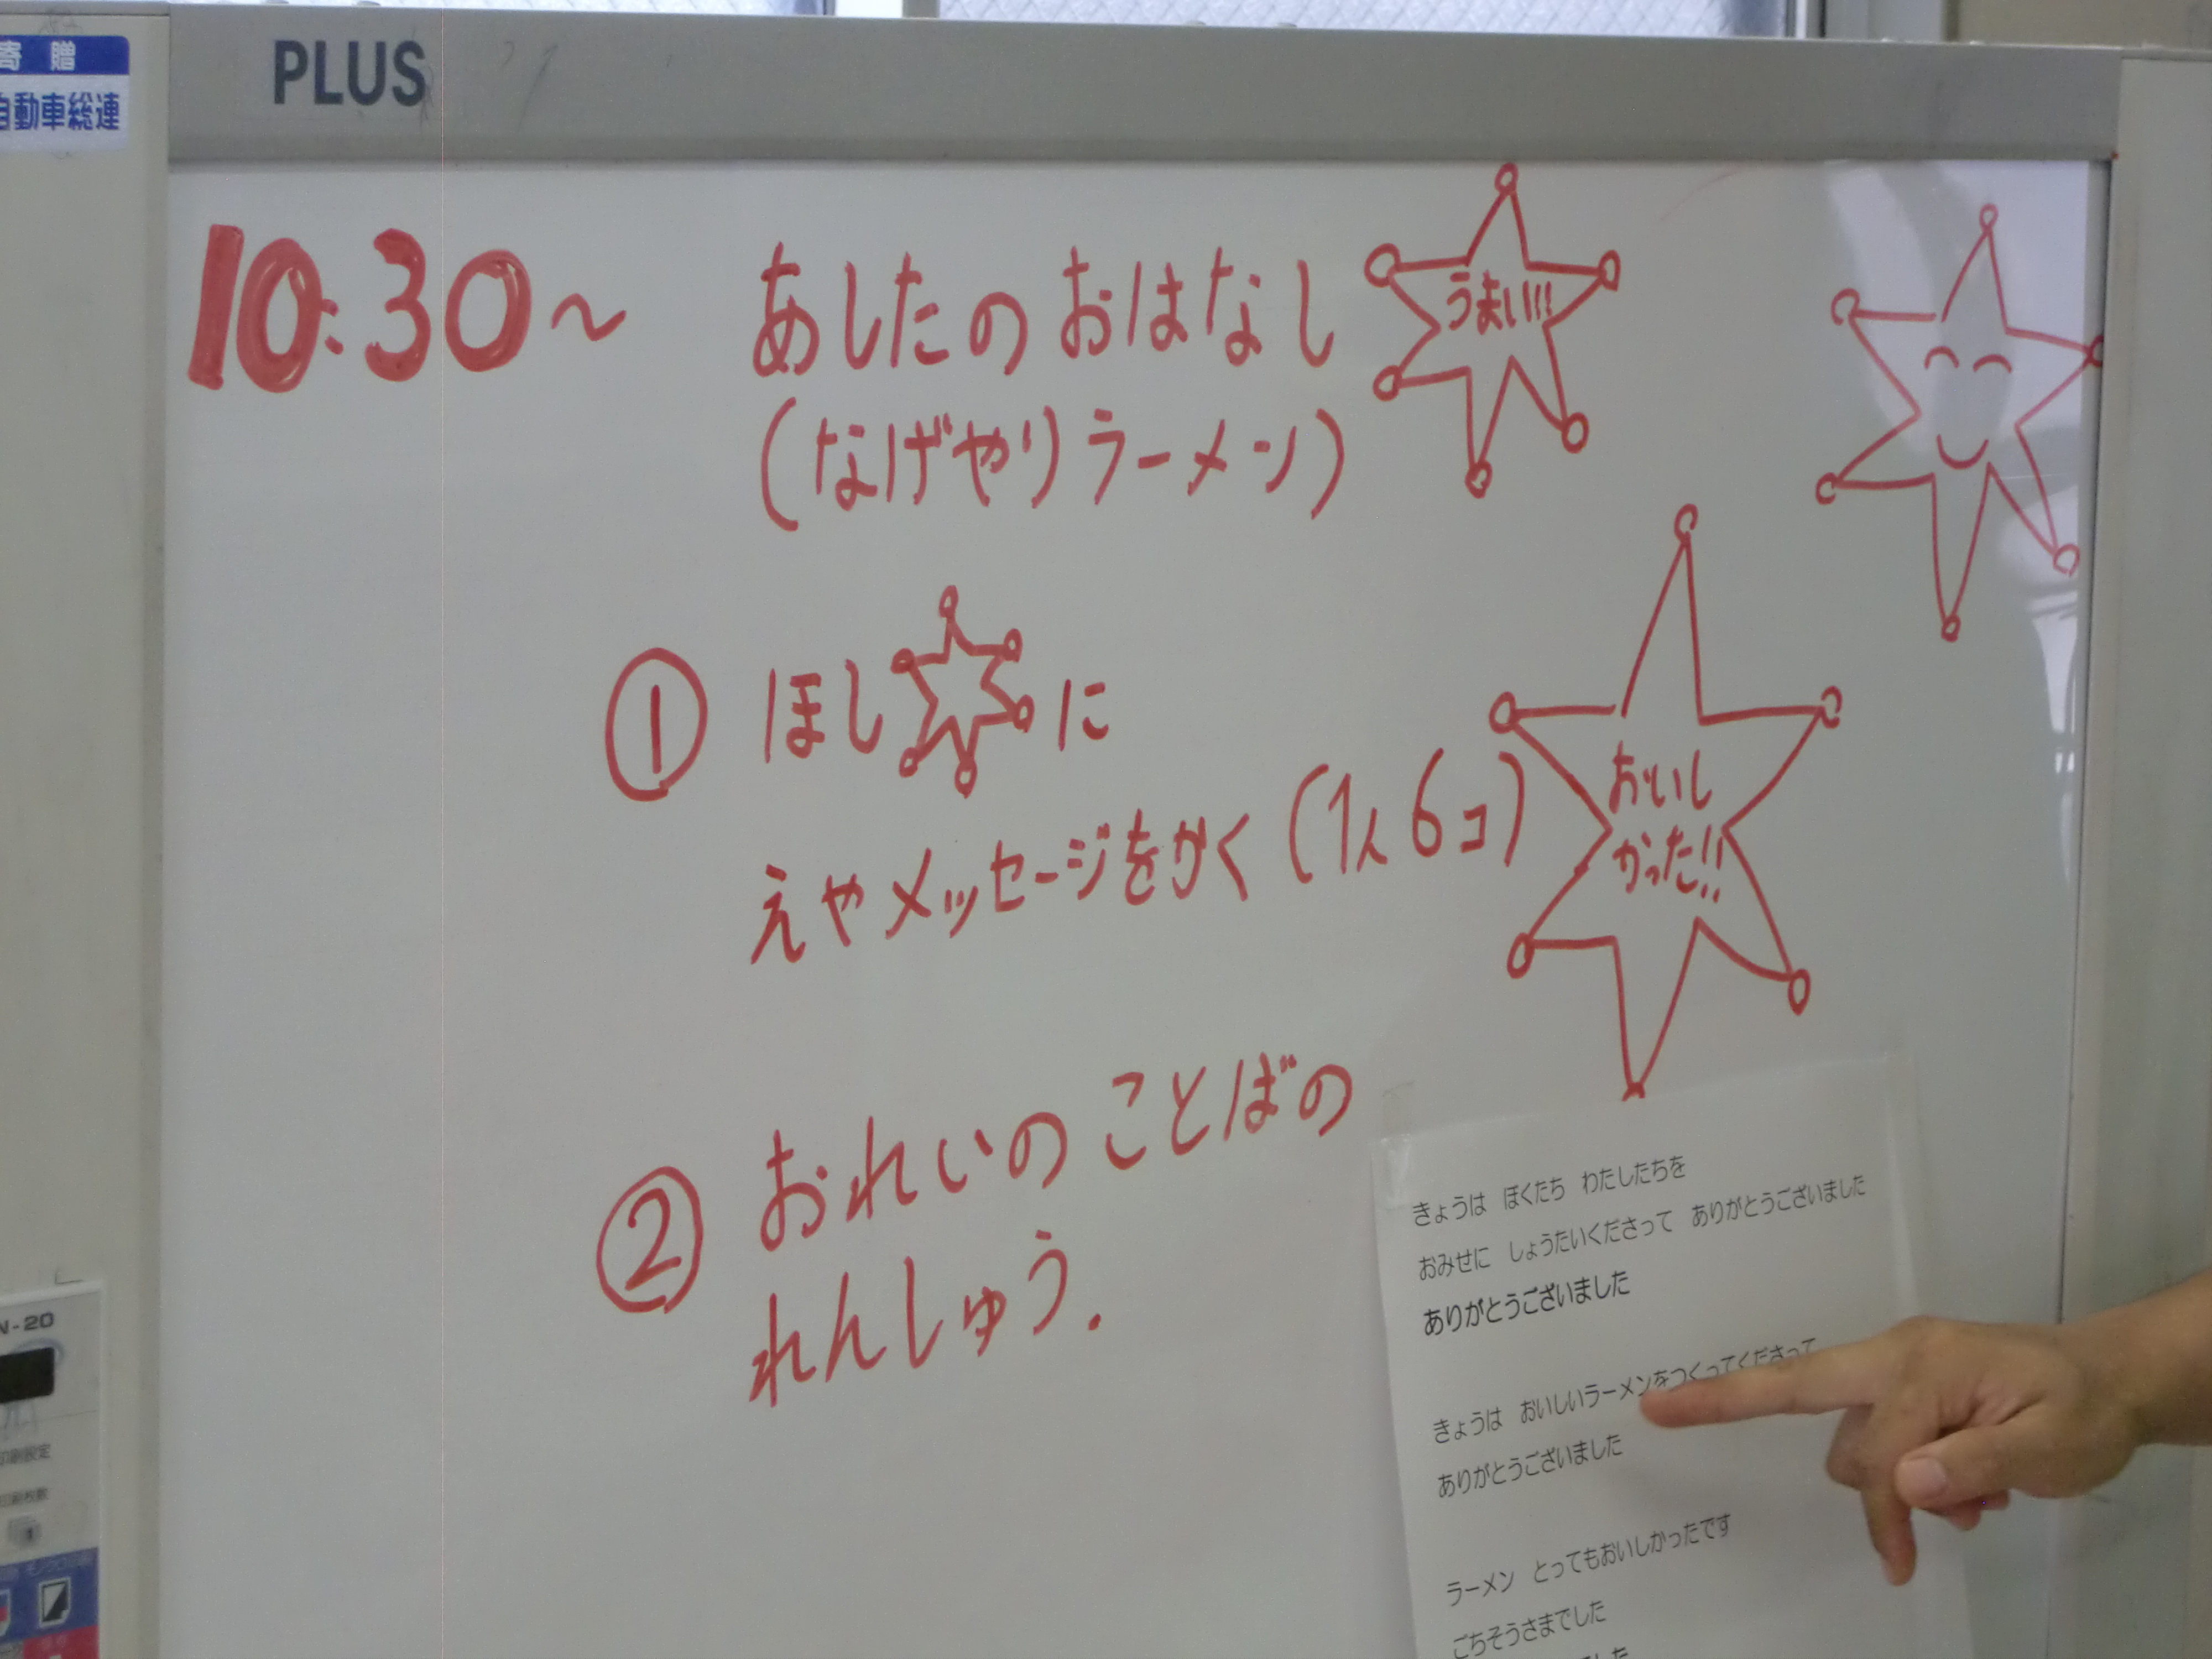 PLUS
寄贈
自動車総連
10:30～ あしたのおはなし
うまい!!!
(なげやりラーメン)
① ほしに
えやメッセージをかく(1人6コ)
おいし
かった!!
② おれいのことばの
れんしゅう.
きょうは ぼくたち わたしたちを
おみせに しょうたいくださって ありがとうございました
ありがとうございました
きょうは おいしいラーメンをつくってくださって
ありがとうございました
ラーメン とってもおいしかったです
ごちそうさまでした
N-20
印刷設定
印刷枚数